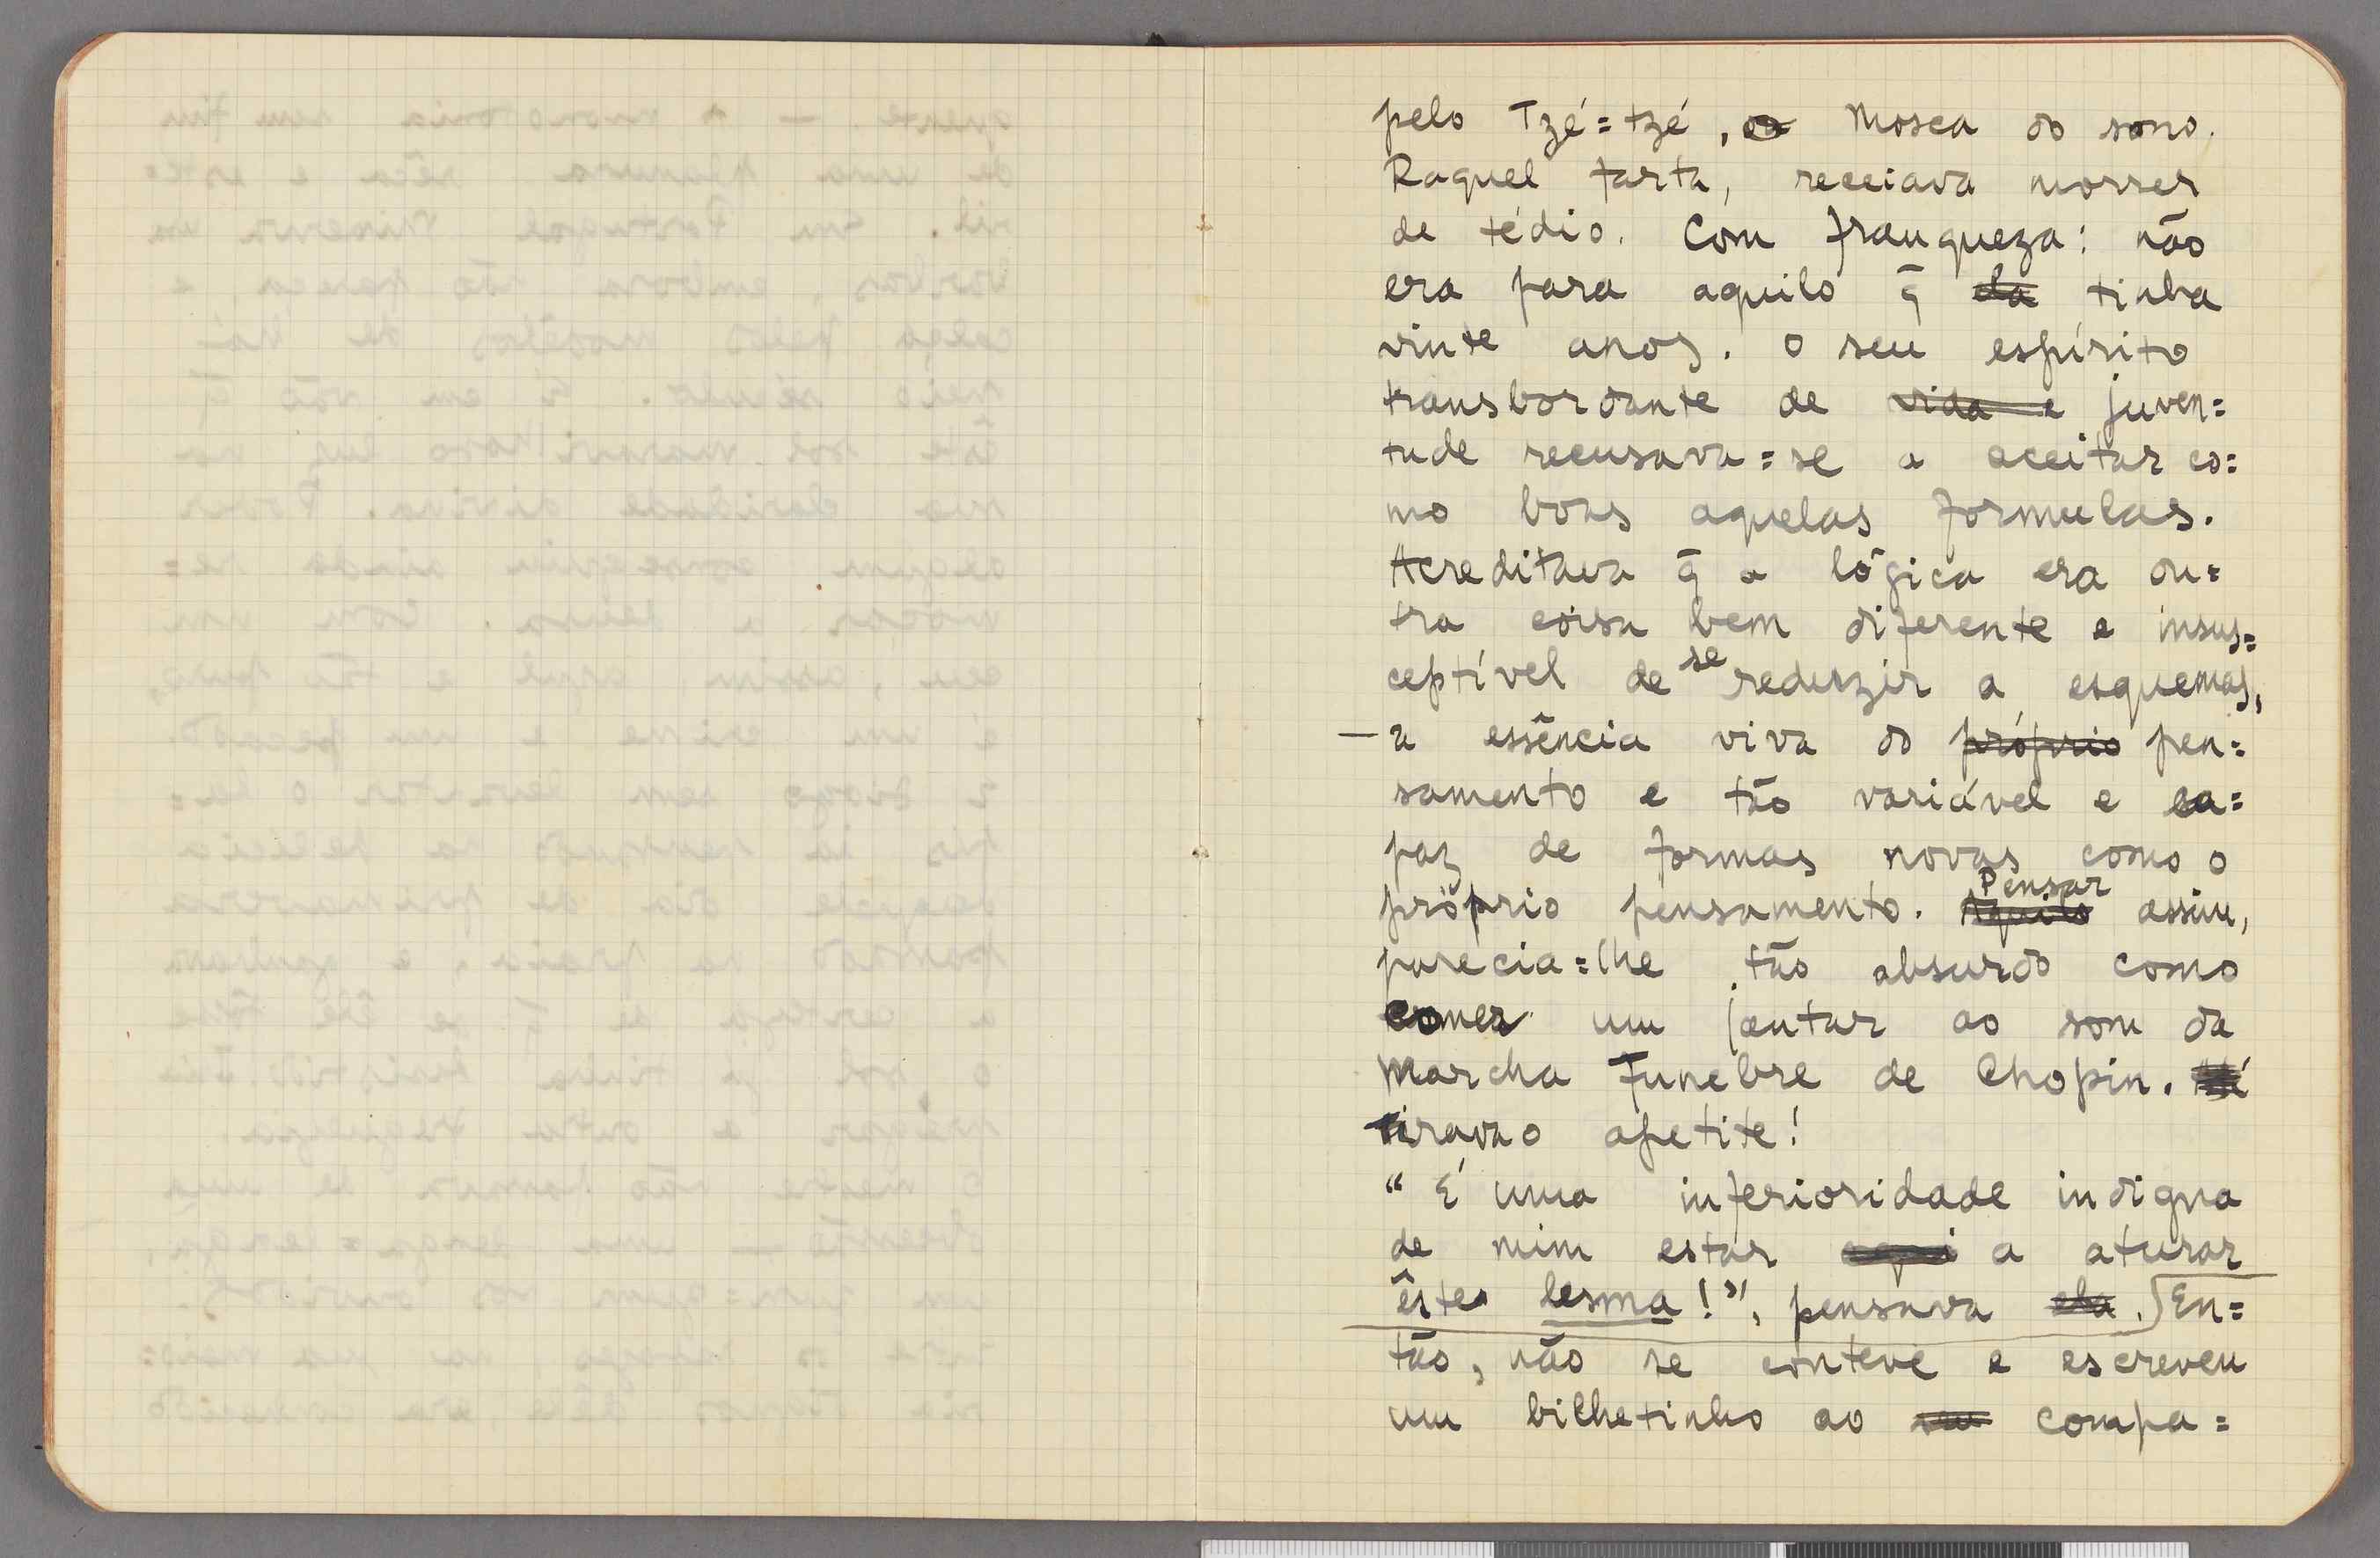 pelo Tzé=tzé, Mosca do sono.
Raquel farta, receiava morrer
de tédio. Com franqueza: não
era para aquilo q̄ ela tinha
vinte anos. O seu espírito
transbordante de vida e juven=
tude recusava=se a aceitar co=
mo boas aquelas formulas.
Acreditava q̄ a lógica era ou=
tra coisa bem diferente e insus=
ceptível de se reduzir a esquemas,
— a essência viva do próprio pen=
samento e tão variável e ca=
paz de formas novas como o
próprio pensamento. Aquilo Pensar assim,
parecia=lhe tão absurdo como
comer um jantar ao som da
Marcha Funebre de Chopin.
Tirava o apetite!
"É uma inferioridade indigna
de mim estar aqui a aturar
êste lesma!", pensava ela. En=
tão, não se conteve e escreveu
um bilhetinho ao seu compa=